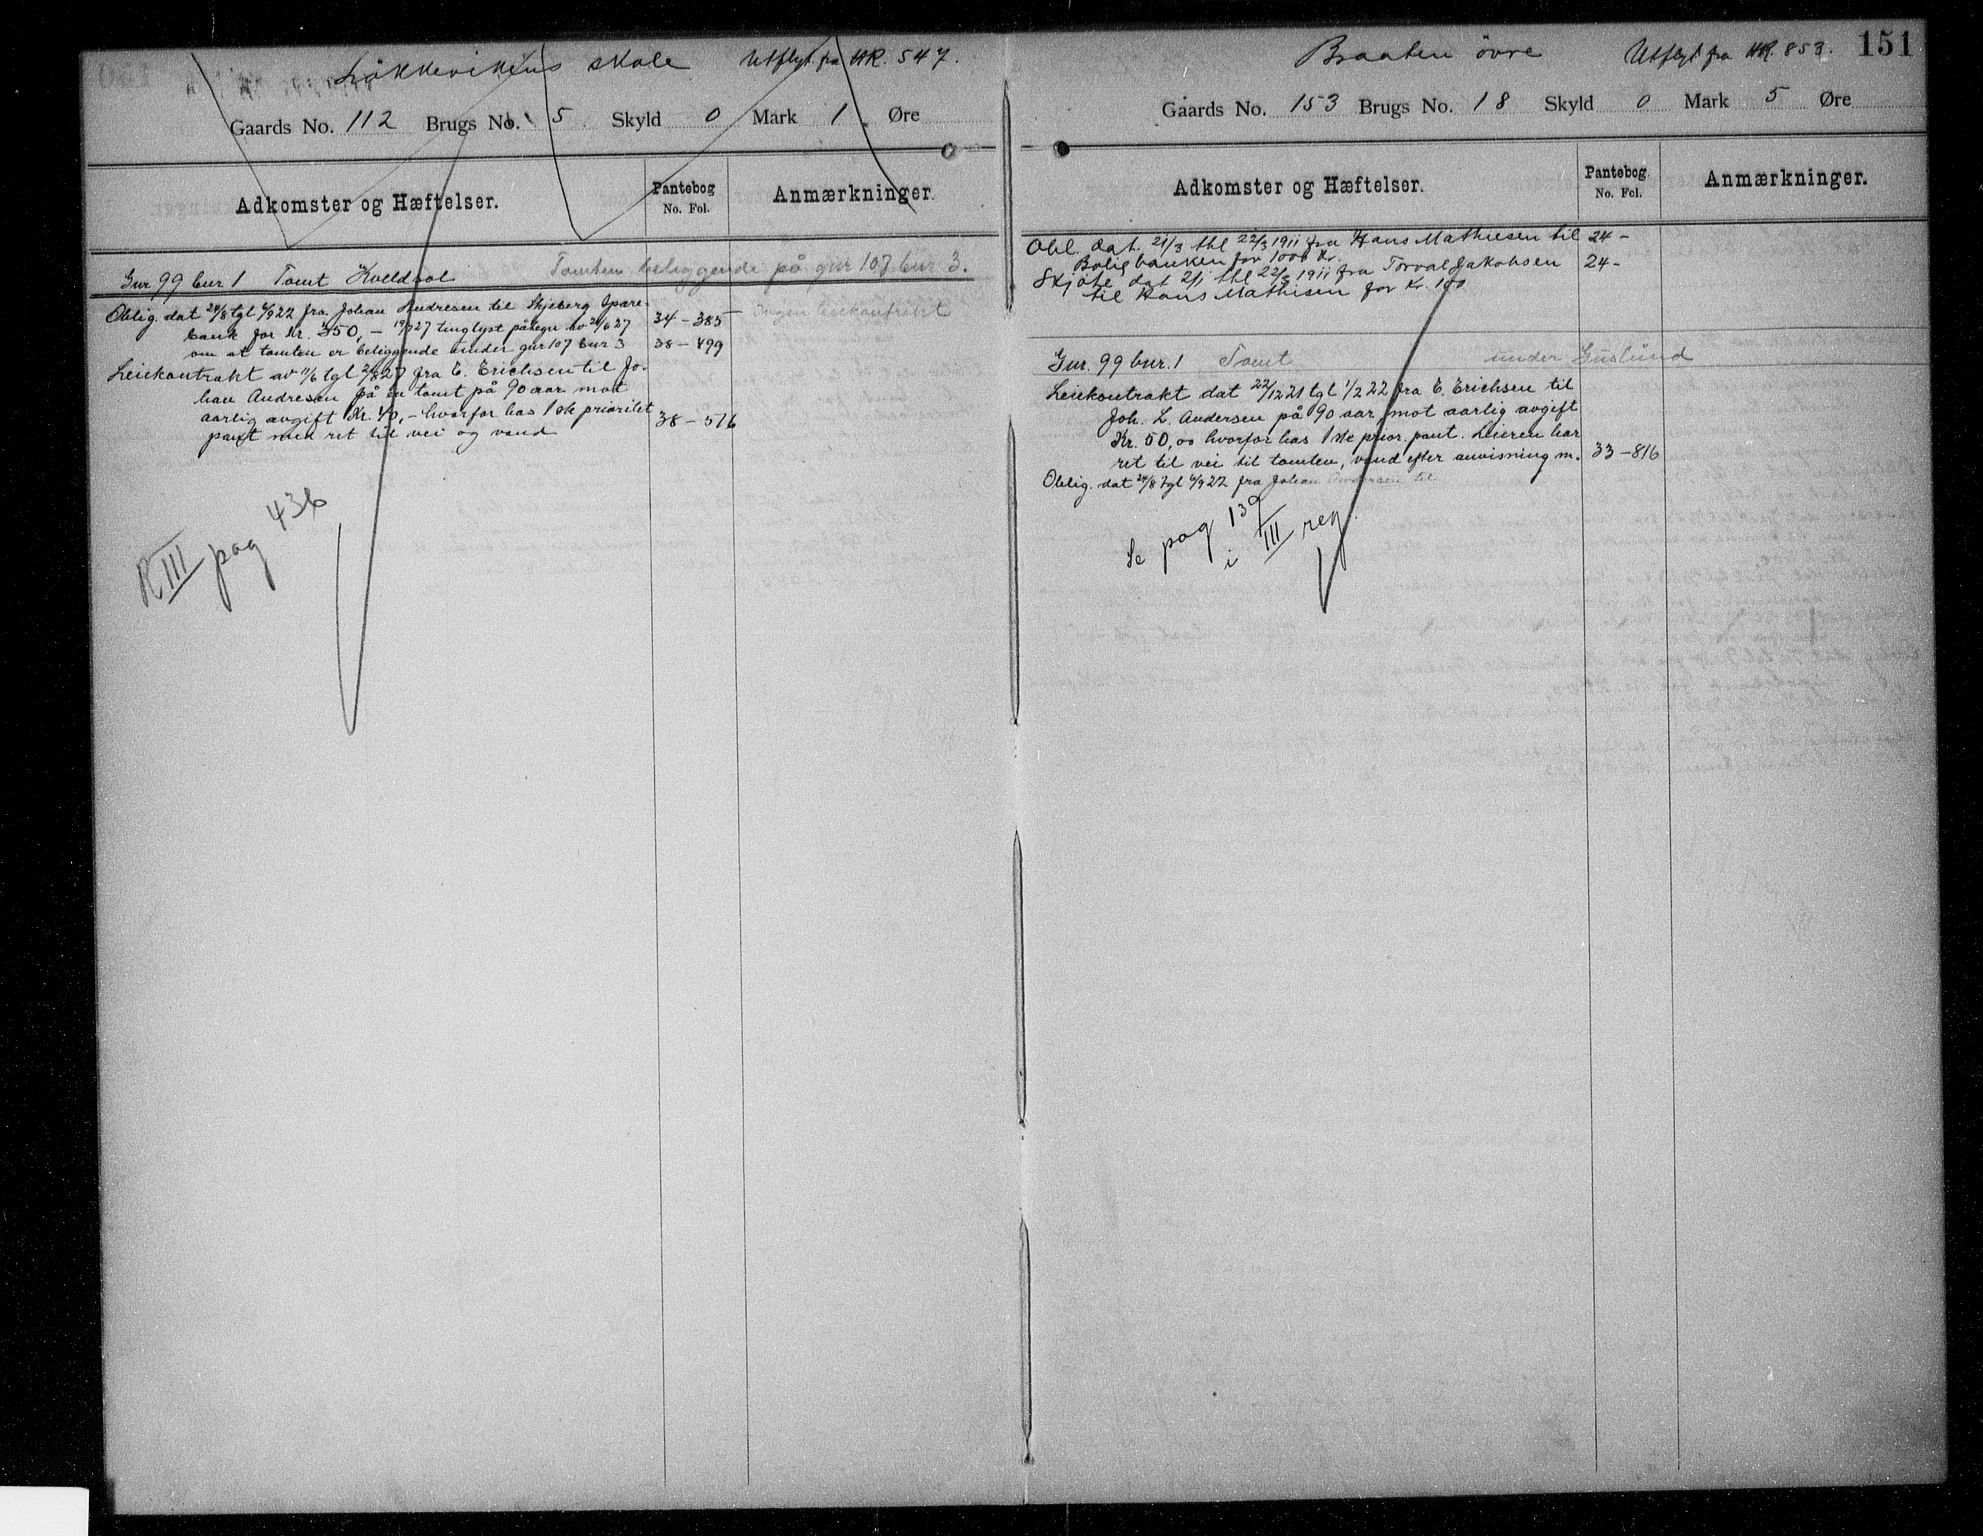 Løkkevikens skole Utflyt fra HR. 547.
Gaards No. 112 Brugs No. 5 Skyld 0 Mark 1 Øre
Adkomster og Hæftelser.
Pantebog
No. Fol.
Anmærkninger.
Gnr 99 bnr 1 Tomt Kveldsol Tomten beliggende på gnr 107 bnr 3.
Oblig. dat 24/8 tgl 6/9 22 fra Johan Andresen til Skjeberg Spare-
bank for Kr. 350,— 19/7 27 tinglyst påtegn. av 21/6 27
34-385 Ingen leiekontrakt
om at tomten er beliggende under gnr 107 bnr 3
38-499
Leiekontrakt av 11/6 tgl 2/8 27 fra E. Erichsen til Jo-
han Andresen på en tomt på 90 aar mot
aarlig avgift Kr. 40,- hvorfor has 1ste prioritet
38-516
pant med ret til vei og vand
R III pag 436
Braaten övre Utflyt fra HR. 853.
151
Gaards No. 153 Brugs No. 18 Skyld 0 Mark 5 Øre
Adkomster og Hæftelser.
Pantebog
No. Fol.
Anmærkninger.
Obl. dat. 21/3 thl 22/3 1911 fra Hans Mathiesen til
24-
Boligbanken for 1000 Kr.
Skjöte dat 2/1 thl 22/3 1911 fra Torval Jakobsen
24-
til Hans Mathisen for Kr. 100
Gnr. 99 bnr. 1 Tomt under Guslund
Leiekontrakt dat 22/12 21 tgl 1/2 22 fra E. Erichsen til
Joh. L. Andersen på 90 aar mot aarlig avgift
Kr. 50,00 hvorfor has 1ste prior. pant. Leieren har
ret til vei til tomten, vand efter anvisning m.
33-816
Oblig. dat 24/8 tgl 6/9 22 fra Johan Andersen til
Se pag 139
i III reg.